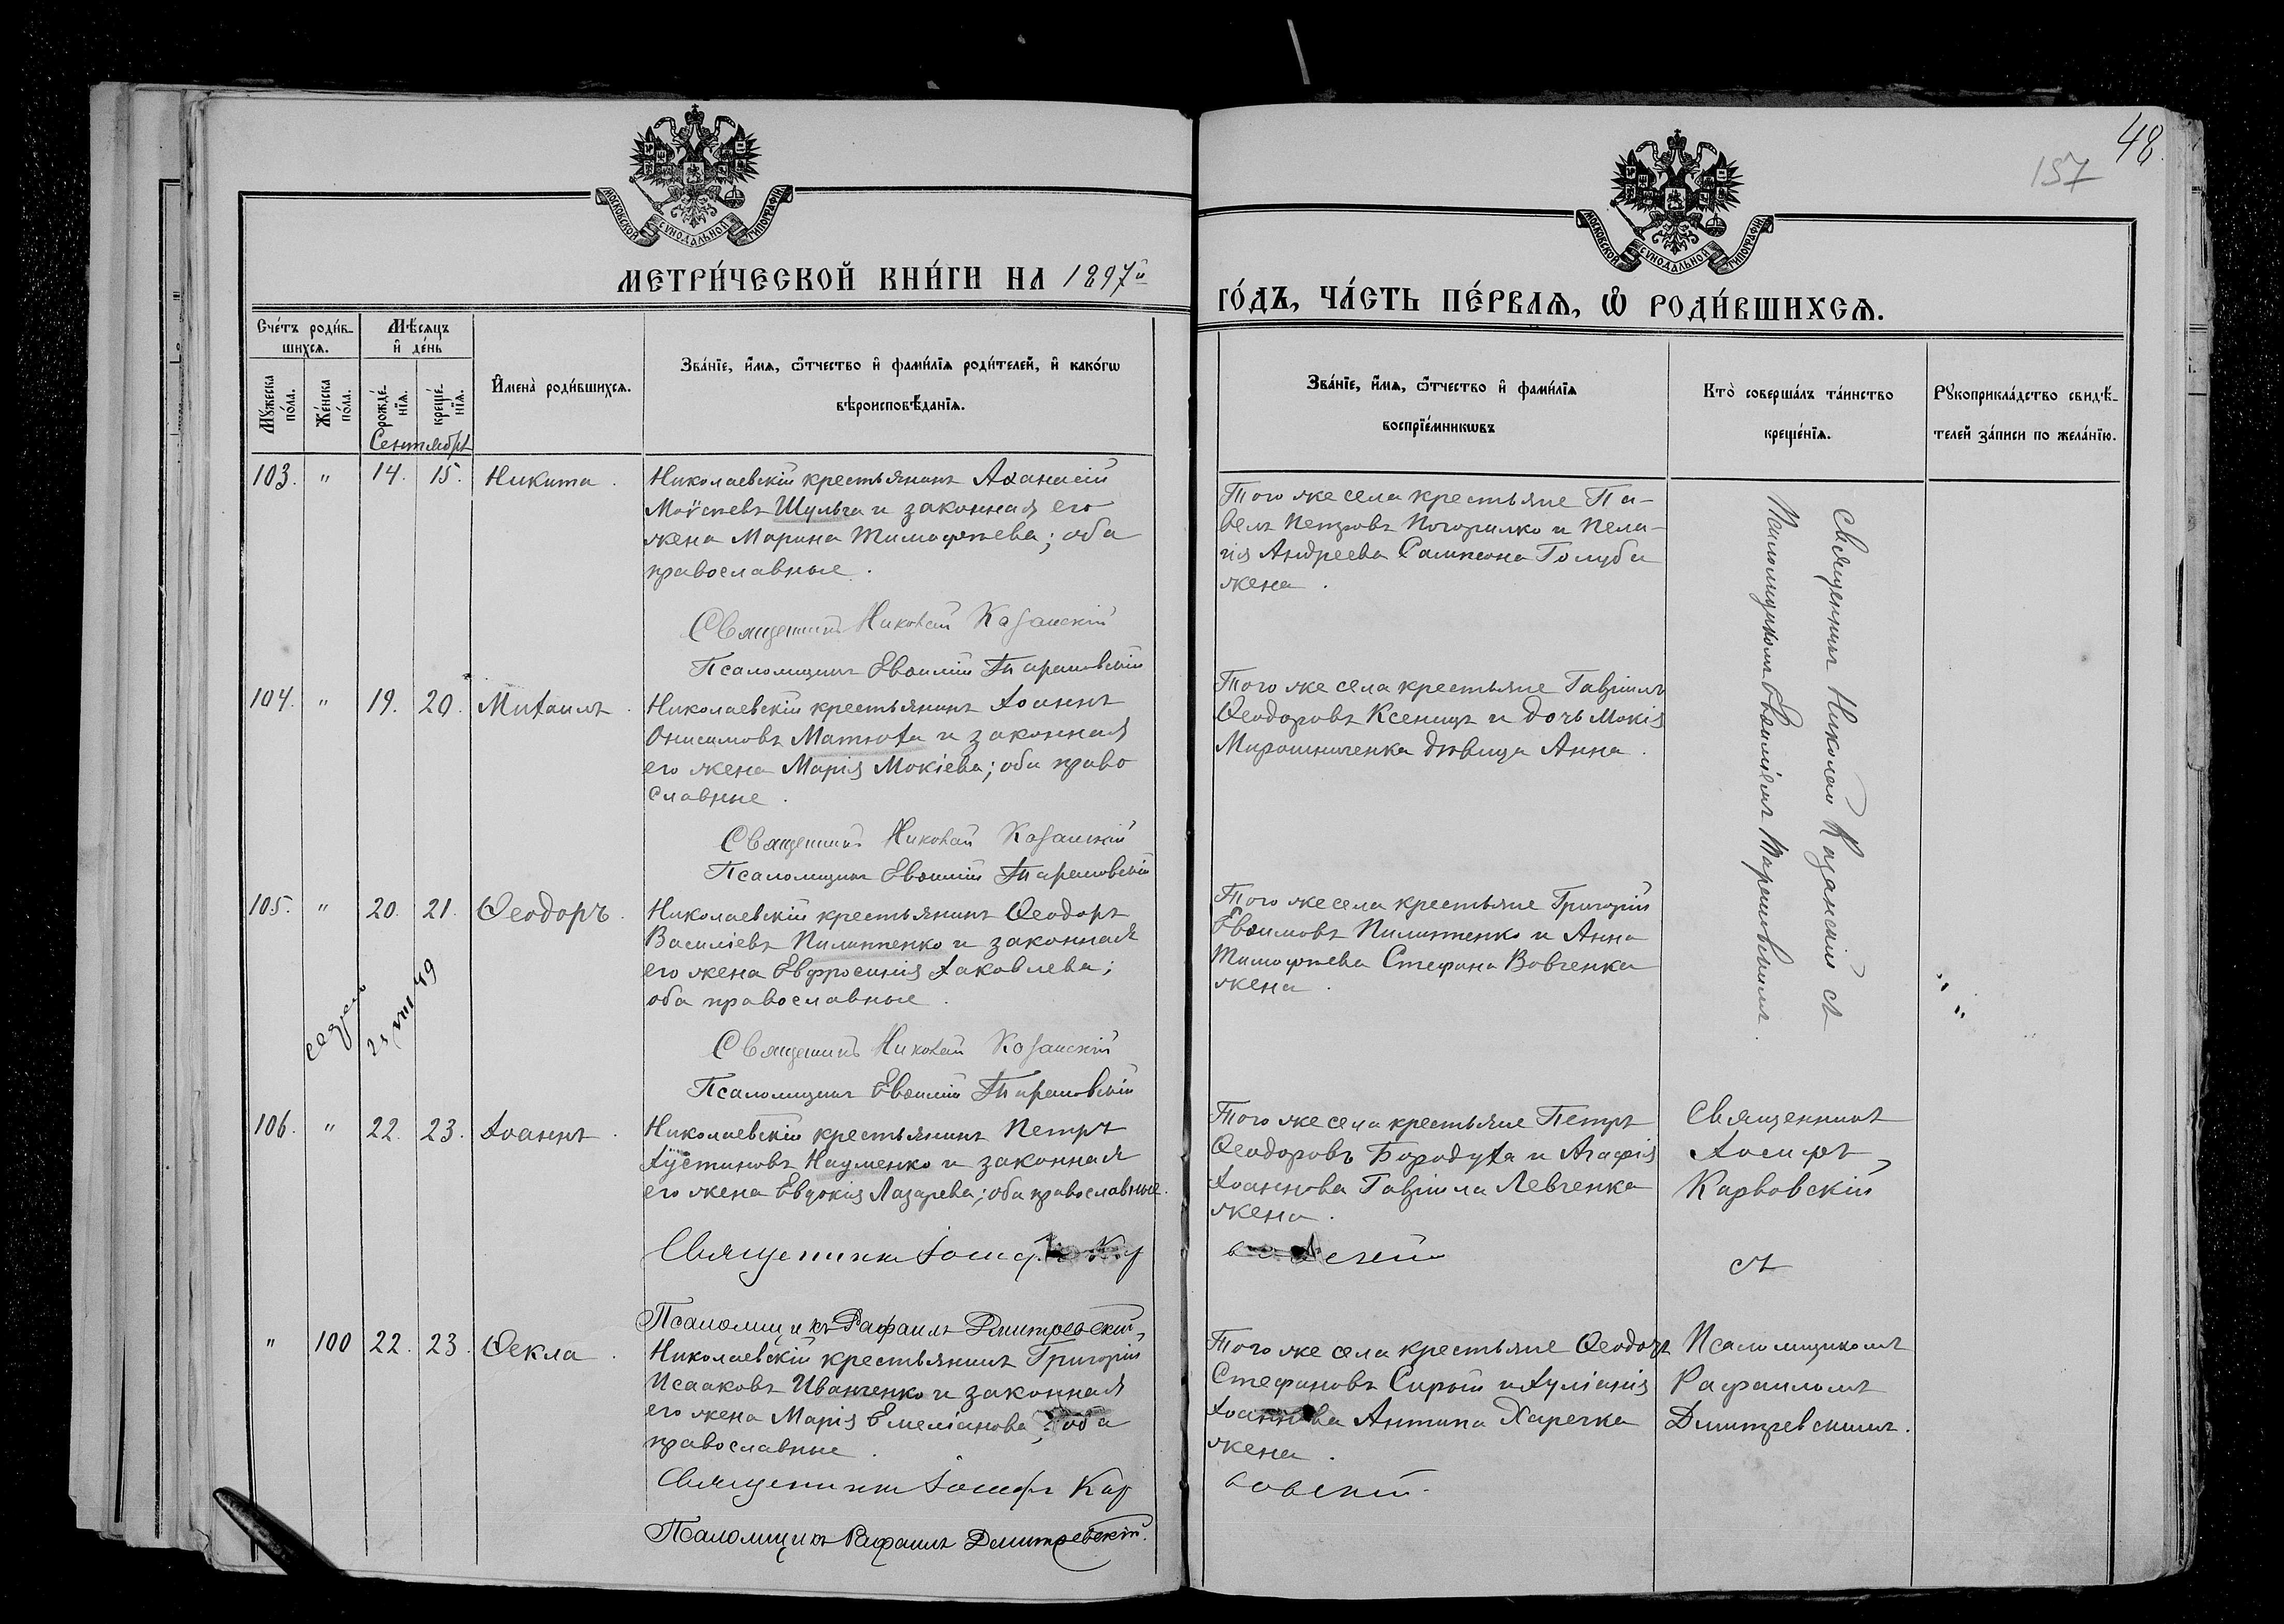 48.
157
МОСКОВСКОЙ СѴНОДАЛЬНОЙ ТИПОГРАФІИ
МОСКОВСКОЙ СѴНОДАЛЬНОЙ ТИПОГРАФІИ
МЕТРИ́ЧЕСКОЙ КНИ́ГИ НА 1897й
ГО́ДЪ, ЧА́СТЬ ПЕ́РВАЯ, Ѿ РОДИ́ВШИХСЯ.
Сче́тъ роди́в-
шихся.
Мꙋ́жеска по́ла.
Же́нска по́ла.
Мѣ́сяцъ
и҆ де́нь
рожде́-
нїя.
креще́-
нїя.
Сентябрь
И҆мена̀ роди́вшихся.
Зва́нїе, и҆́мя, ѻ҆́тчество и҆ фами́лїя роди́телей, и҆ како́гѡ
вѣроисповѣ́данїя.
Зва́нїе, и҆́мя, ѻ҆́тчество и҆ фами́лїя
воспрїе́мникѡвъ
Кто̀ соверша́лъ та́инство
креще́нїя.
Рꙋкоприкла́дство свидѣ́-
телей за́писи по жела́нїю.
103. " 14. 15. Никита.
Николаевскій крестьянинъ Аѳанасій
Моѵсеевъ Шульга и законная его
жена Марина Тимофѣева; оба
православные.
Священникъ Николай Казанскій
Псаломщикъ Евѳимій Тарановскій
Того же села крестьяне Па-
велъ Петровъ Погорилко и Пела-
гія Андреева Сампсона Голуба
жена.
Священникъ Николай Казанскій съ
Псаломщикомъ Евѳиміемъ Тарановскимъ.
104. " 19. 20. Михаилъ.
Николаевскій крестьянинъ Іоаннъ
Онисимовъ Матюха и законная
его жена Марія Мокіева; оба право
славные.
Священникъ Николай Казанскій
Псаломщикъ Евѳимій Тарановскій
Того же села крестьяне Гавріилъ
Ѳеодоровъ Ксеницъ и дочь Мокія
Мирошниченка дѣвица Анна.
105. " 20. 21. Ѳеодоръ.
Николаевскій крестьянинъ Ѳеодоръ
Василіевъ Пилипенко и законная
его жена Евфросинія Іаковлева;
оба православные.
Священникъ Николай Казанскій
Псаломщикъ Евѳимій Тарановскій
Того же села крестьяне Григорій
Евѳимовъ Пилипенко и Анна
Тимофѣева Стефана Вовченка
жена.
" "
106. " 22. 23. Іоаннъ.
Николаевскій крестьянинъ Петръ
Іустиновъ Науменко и законная
его жена Евдокія Лазарева; оба православные.
Священникъ Іосифъ Кар
вовскій
Псаломщикъ Рафаилъ Дмитревскій.
Того же села крестьяне Петръ
Ѳеодоровъ Бородуха и Агафія
Іоаннова Гавріила Левченка
жена.
Священникъ
Іосифъ
Карвовскій
съ
" 100 22. 23. Ѳекла.
Николаевскій крестьянинъ Григорій
Исааковъ Иванченко и законная
его жена Марія Емеліанова; оба
православные.
Священникъ Іосифъ Кар
вовскій.
Псаломщикъ Рафаилъ Дмитревскій.
Того же села крестьяне Ѳеодоръ
Стефановъ Сирый и Іуліанія
Іоаннова Антипа Харечка
жена.
Псаломщикомъ
Рафаиломъ
Дмитревскимъ.